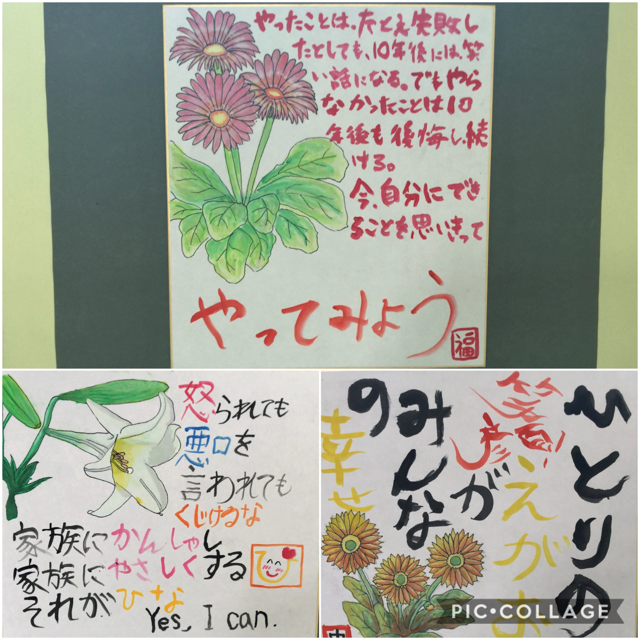 やったことは、たとえ失敗し
たとしても、10年後には、笑
い話になる。でもやら
なかったことは10
年後も後悔し続
ける。
今、自分にでき
ることを思いきって
やってみよう
福
怒られても
悪口を
言われても
くじけるな
家族にかんしゃし
家族にやさしくする
それがひな
Yes, I can.
ひ
ひとりの
えがお
笑顔
が
みんな
の
幸せ
PIC•COLLAGE